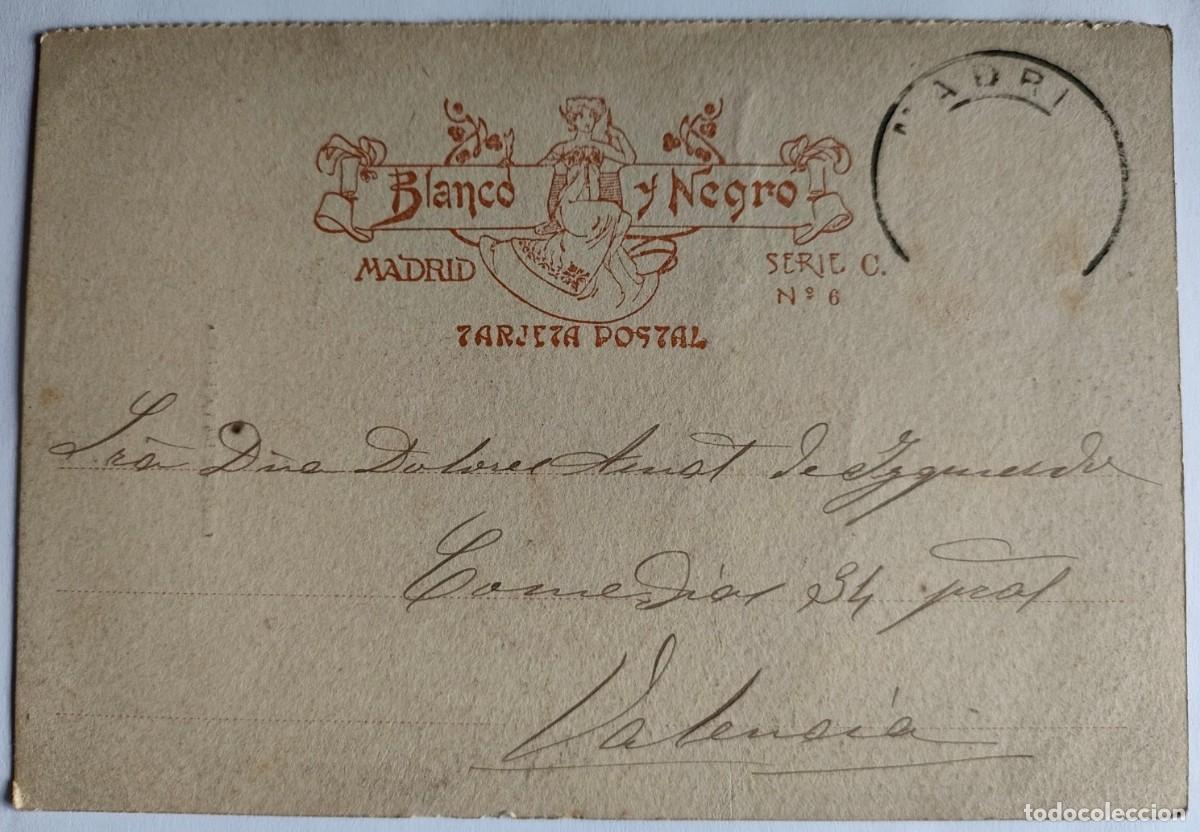 MADRI
Blanco y Negro
MADRID
SERIE C.
Nº 6
TARJETA POSTAL
Sra Dña Dolores Amat de Yzquierdo
Comedias 34 pral
Valencia
todocoleccion